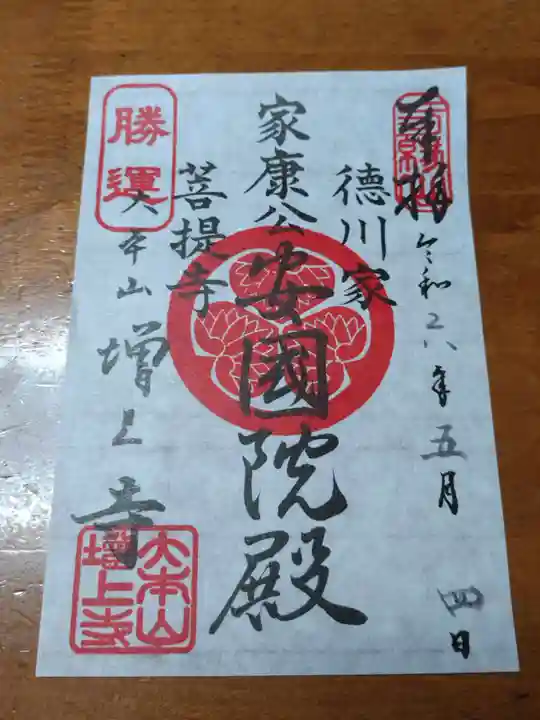 奉拝
令和六年五月四日
徳川家
家康公安國院殿
菩提寺
勝運
大本山増上寺
大本山
増上寺